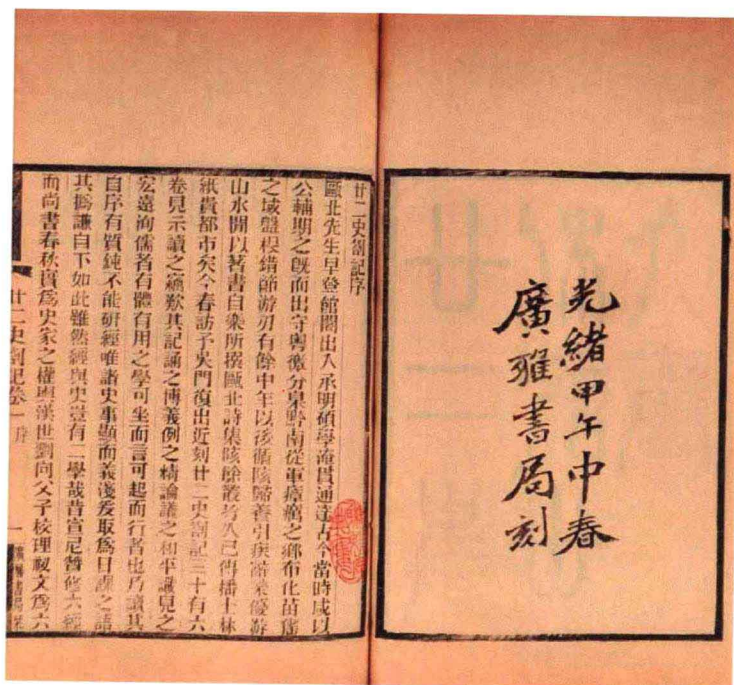 光緒甲午中春
廣雅書局刻
廿二史劄記序
甌北先生早登館閣出入承明碩學淹貫通達古今當時咸以
公輔期之旣而出守粵徼分臬黔南從軍瘴癘之鄉布化苗猺
之域盤根錯節游刃有餘中年以後循陔歸養引疾辭榮優游
山水閒以著書自樂所撰甌北詩集陔餘叢考久已傳播士林
紙貴都市矣今春訪予吳門復出近刻廿二史劄記三十有六
卷見示讀之竊歎其記誦之博義例之精論議之和平識見之
宏遠洵儒者有體有用之學可坐而言可起而行者也乃讀其
自序有質鈍不能研經唯諸史事顯而義淺爰取爲日課之語
其撝謙自下如此雖然經與史豈有二學哉昔宣尼贊修六經
而尚書春秋實爲史家之權輿漢世劉向父子校理祕文爲六
廿二史劄記卷一 序
一
廣雅書局栞